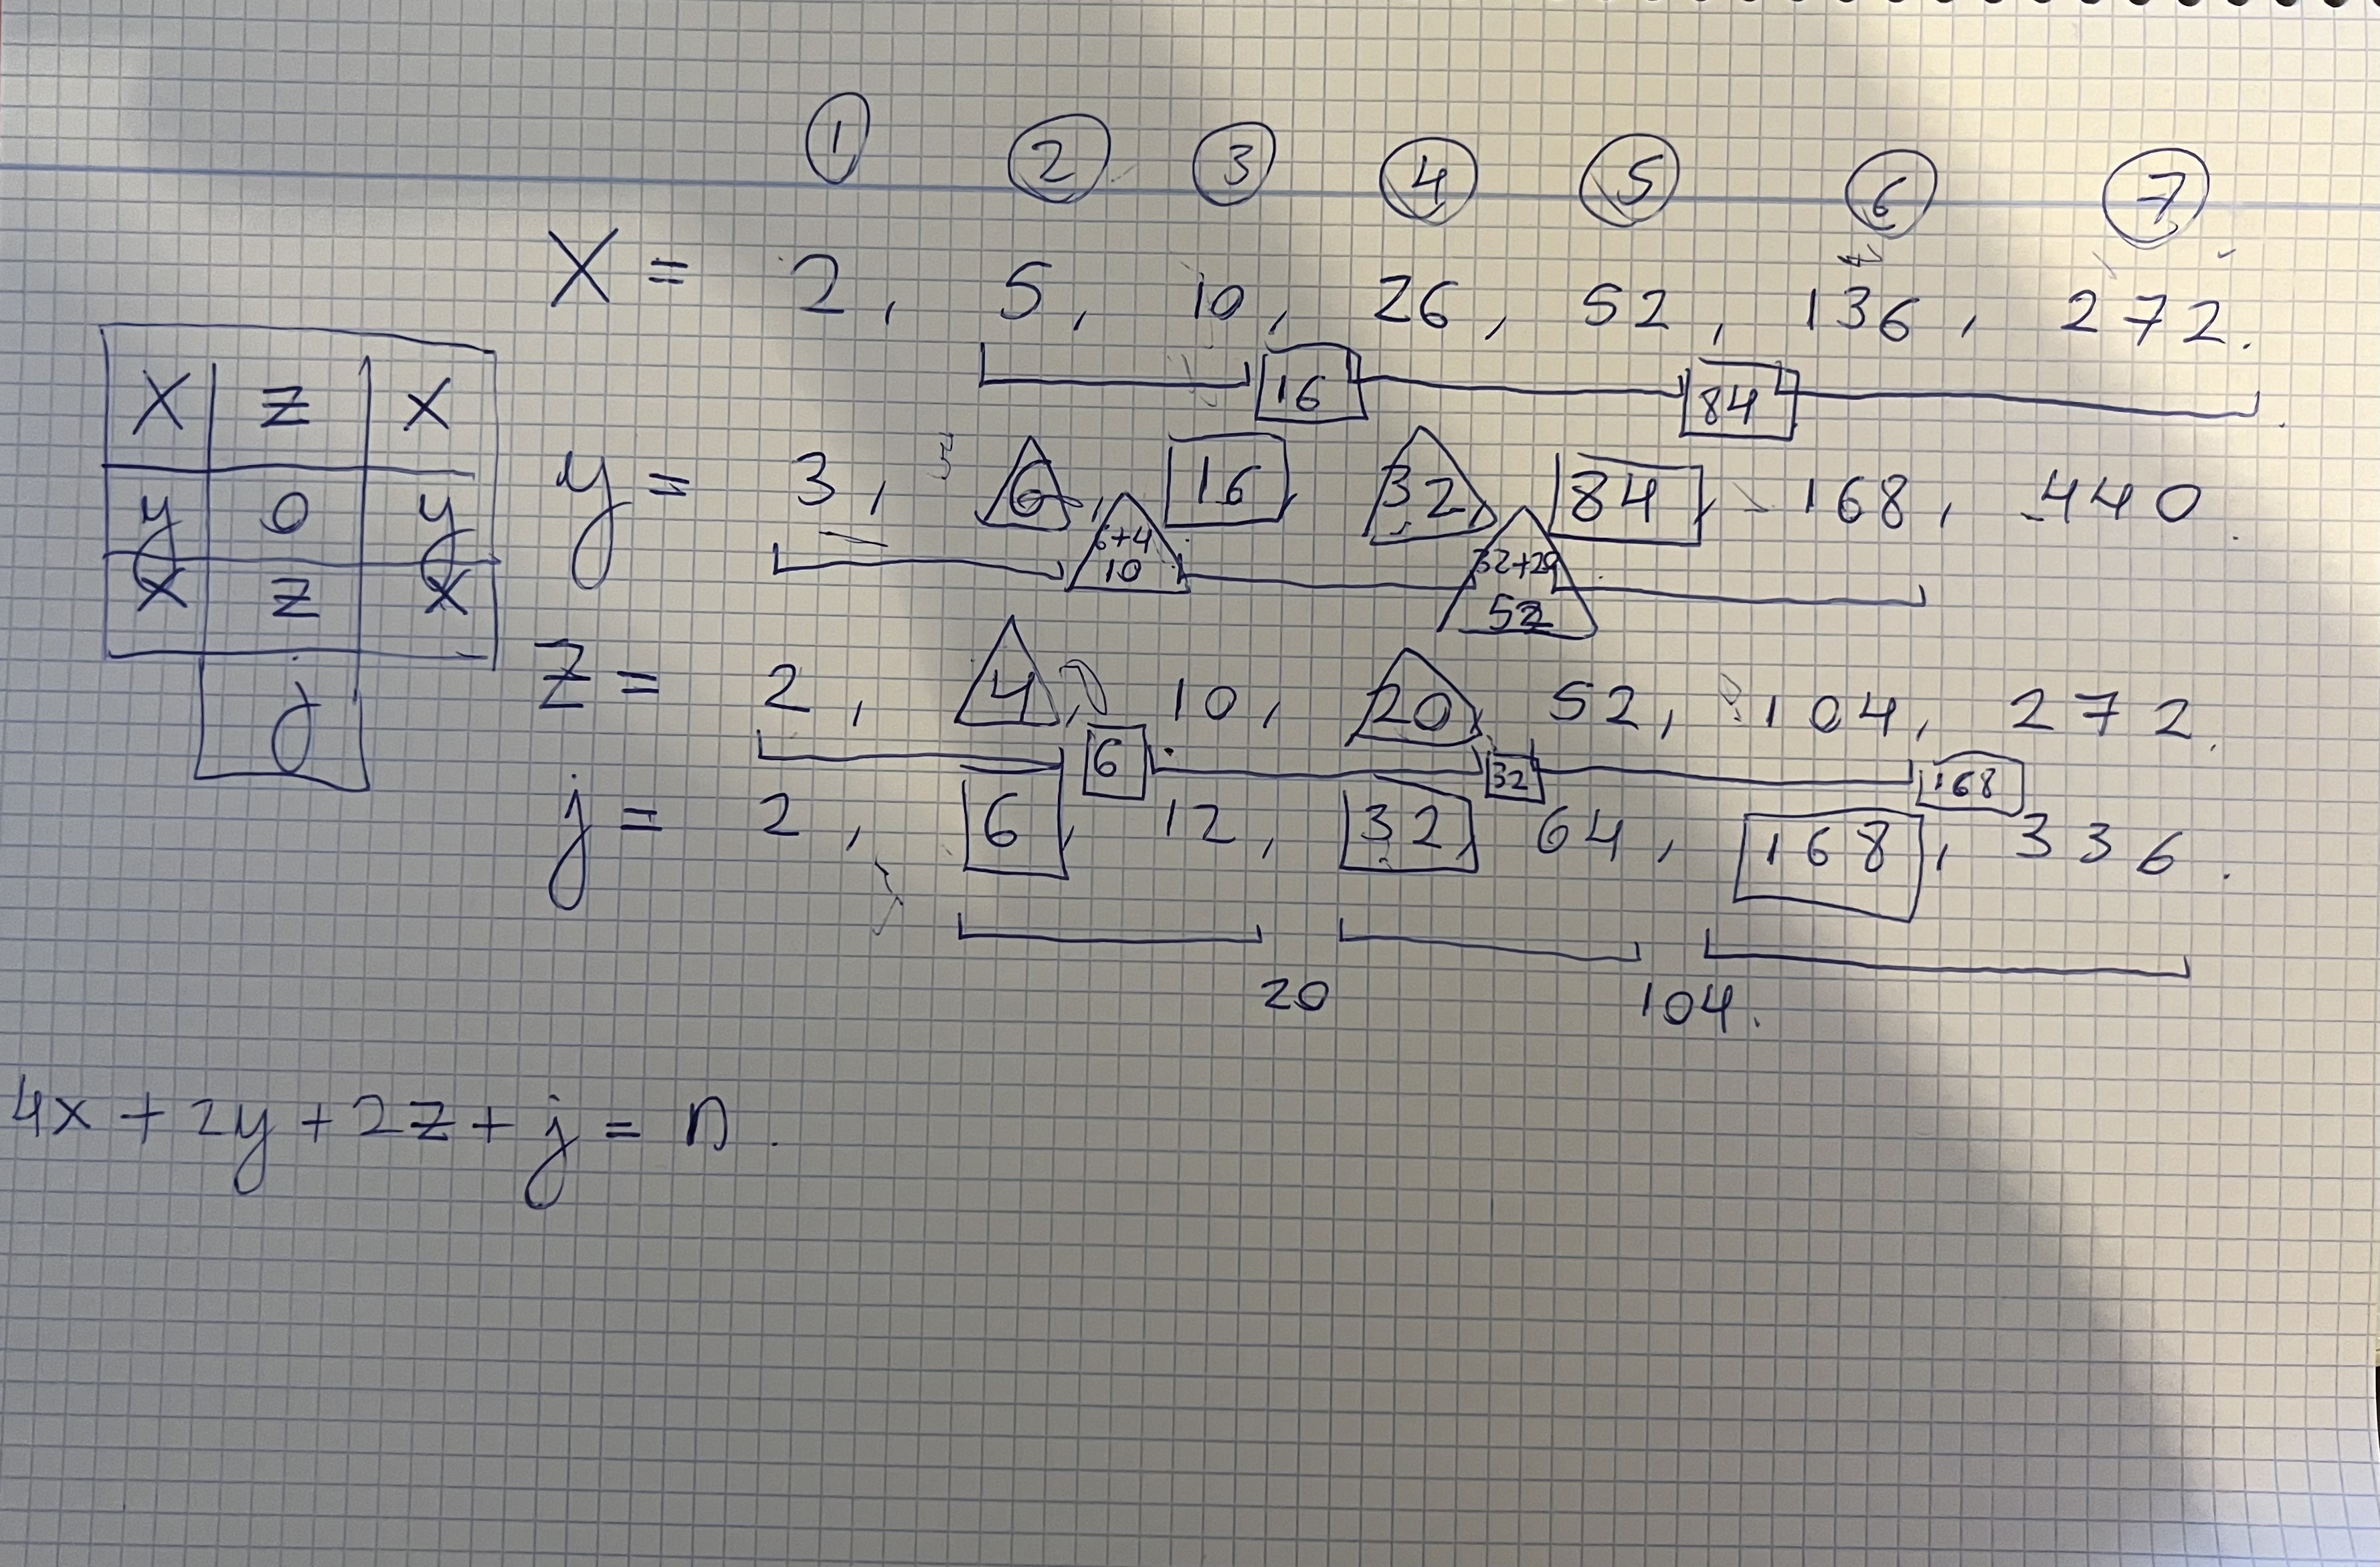 1 2 3 4 5 6 7
X = 2, 5, 10, 26, 52, 136, 272.
16 84
X z X
y = 3, 6, 16, 32, 84, 168, 440
y 0 y
6+4 32+20
10 52
X z X
z = 2, 4, 10, 20, 52, 104, 272.
j
6 32 168
j = 2, 6, 12, 32, 64, 168, 336.
20 104.
4x + 2y + 2z + j = n.